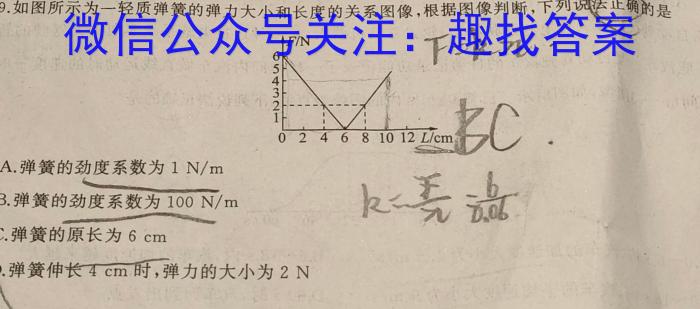 9.如图所示为一轻质弹簧的弹力大小和长度的关系图像,根据图像判断,下列说法正确的是
微信公众号关注：趣找答案
F/N
6
5
4
3
2
1
0 2 4 6 8 10 12 L/cm
BC.
A.弹簧的劲度系数为 1 N/m
B.弹簧的劲度系数为 100 N/m
k=F/x=6/0.06
C.弹簧的原长为 6 cm
D.弹簧伸长 4 cm 时,弹力的大小为 2 N